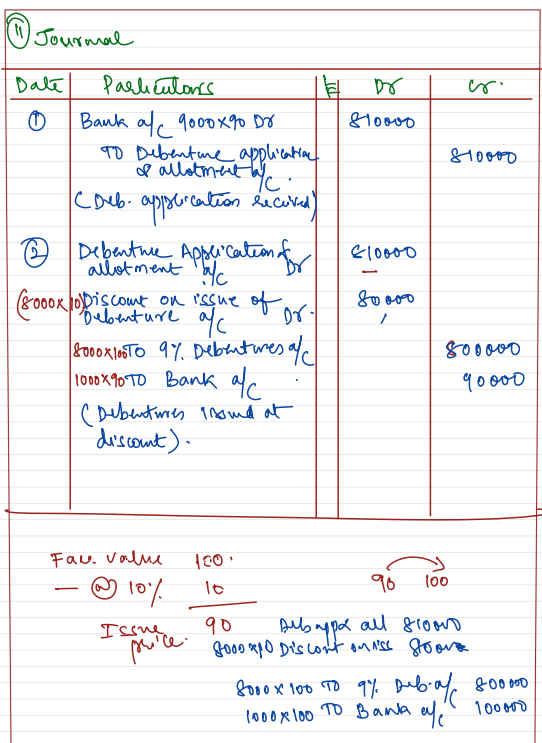 11 Journal
Date Particulars LF Dr Cr.
① Bank a/c 9000x90 Dr 810000
To Debenture application & allotment a/c. 810000
(Deb. application received)
② Debenture Application & allotment a/c Dr 810000
(8000x10) Discount on issue of Debenture a/c Dr. 80000
8000x100 To 9% Debentures a/c 800000
1000x90 To Bank a/c 90000
(Debentures issued at
discount).
Face value 100.
— @ 10% 10
Issue price. 90
90 100
Deb app & all 810000
8000x10 Discount on iss 80000
8000x100 To 9% Deb. a/c 800000
1000x100 To Bank a/c 100000